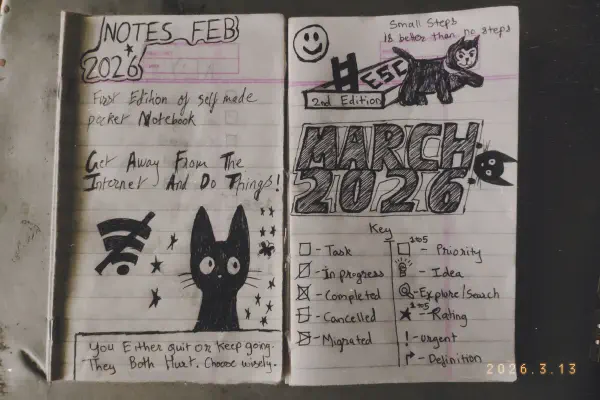 NOTES FEB
2026
First Edition of self made
pocket Notebook
Get Away From The
Internet And Do Things!
You Either quit or keep going.
They Both Hurt. Choose wisely.
Small Steps
is better than no steps
# ESC
2nd Edition
MARCH
2026
Key
- Task
- In progress
- Completed
- Cancelled
- Migrated
1 to 5
- Priority
- Idea
- Explore/Search
1 to 5
- Rating
! - urgent
- Definition
2026.3.13